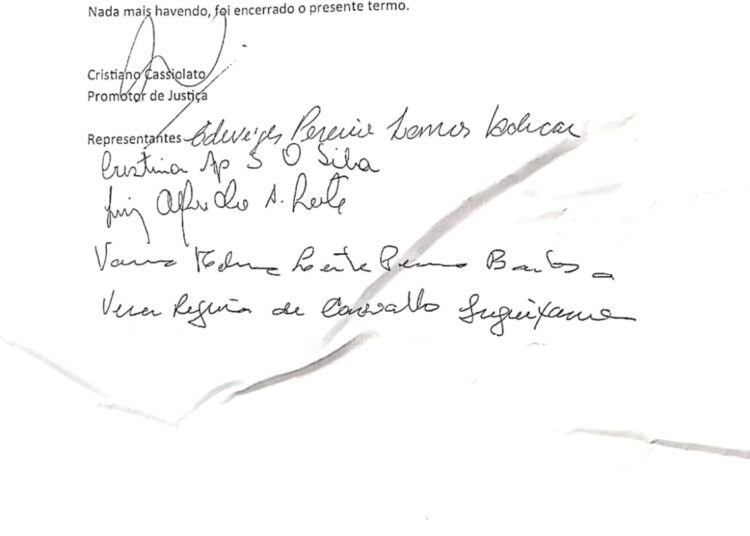 Nada mais havendo, foi encerrado o presente termo.
Cristiano Cassiolato
Promotor de Justiça
Representantes Edwiges Pereira Lemos
Cristina Ap S O Silva
Luiz Alfredo A. Leite
Leite Penna Barbosa
Vera Regina de Carvallo Suguiyama